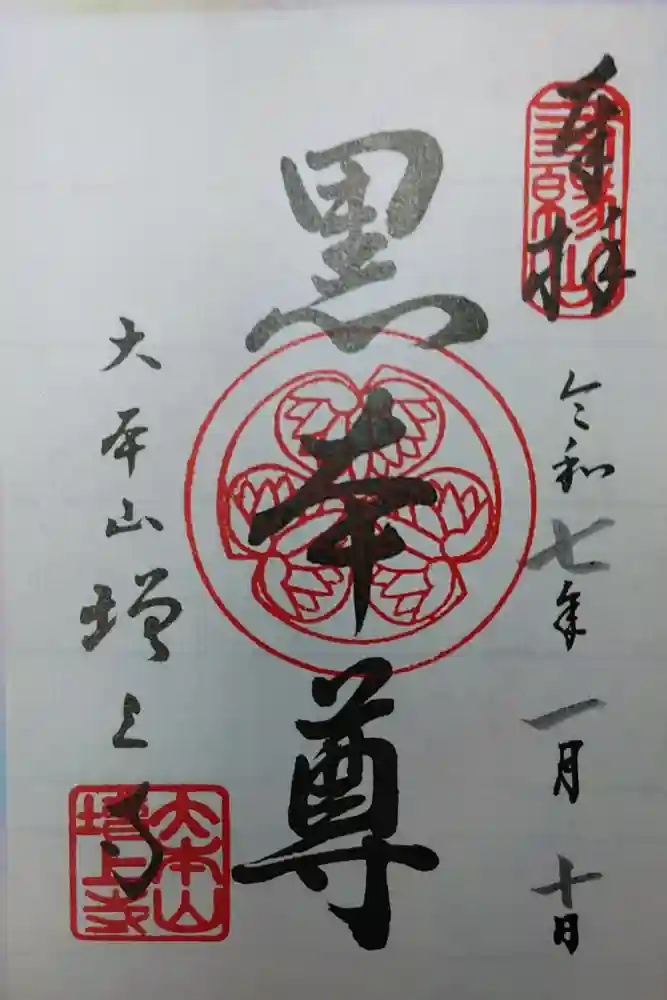 奉拝
三縁山
令和七年一月十日
黒本尊
大本山増上寺
大本山
増上寺